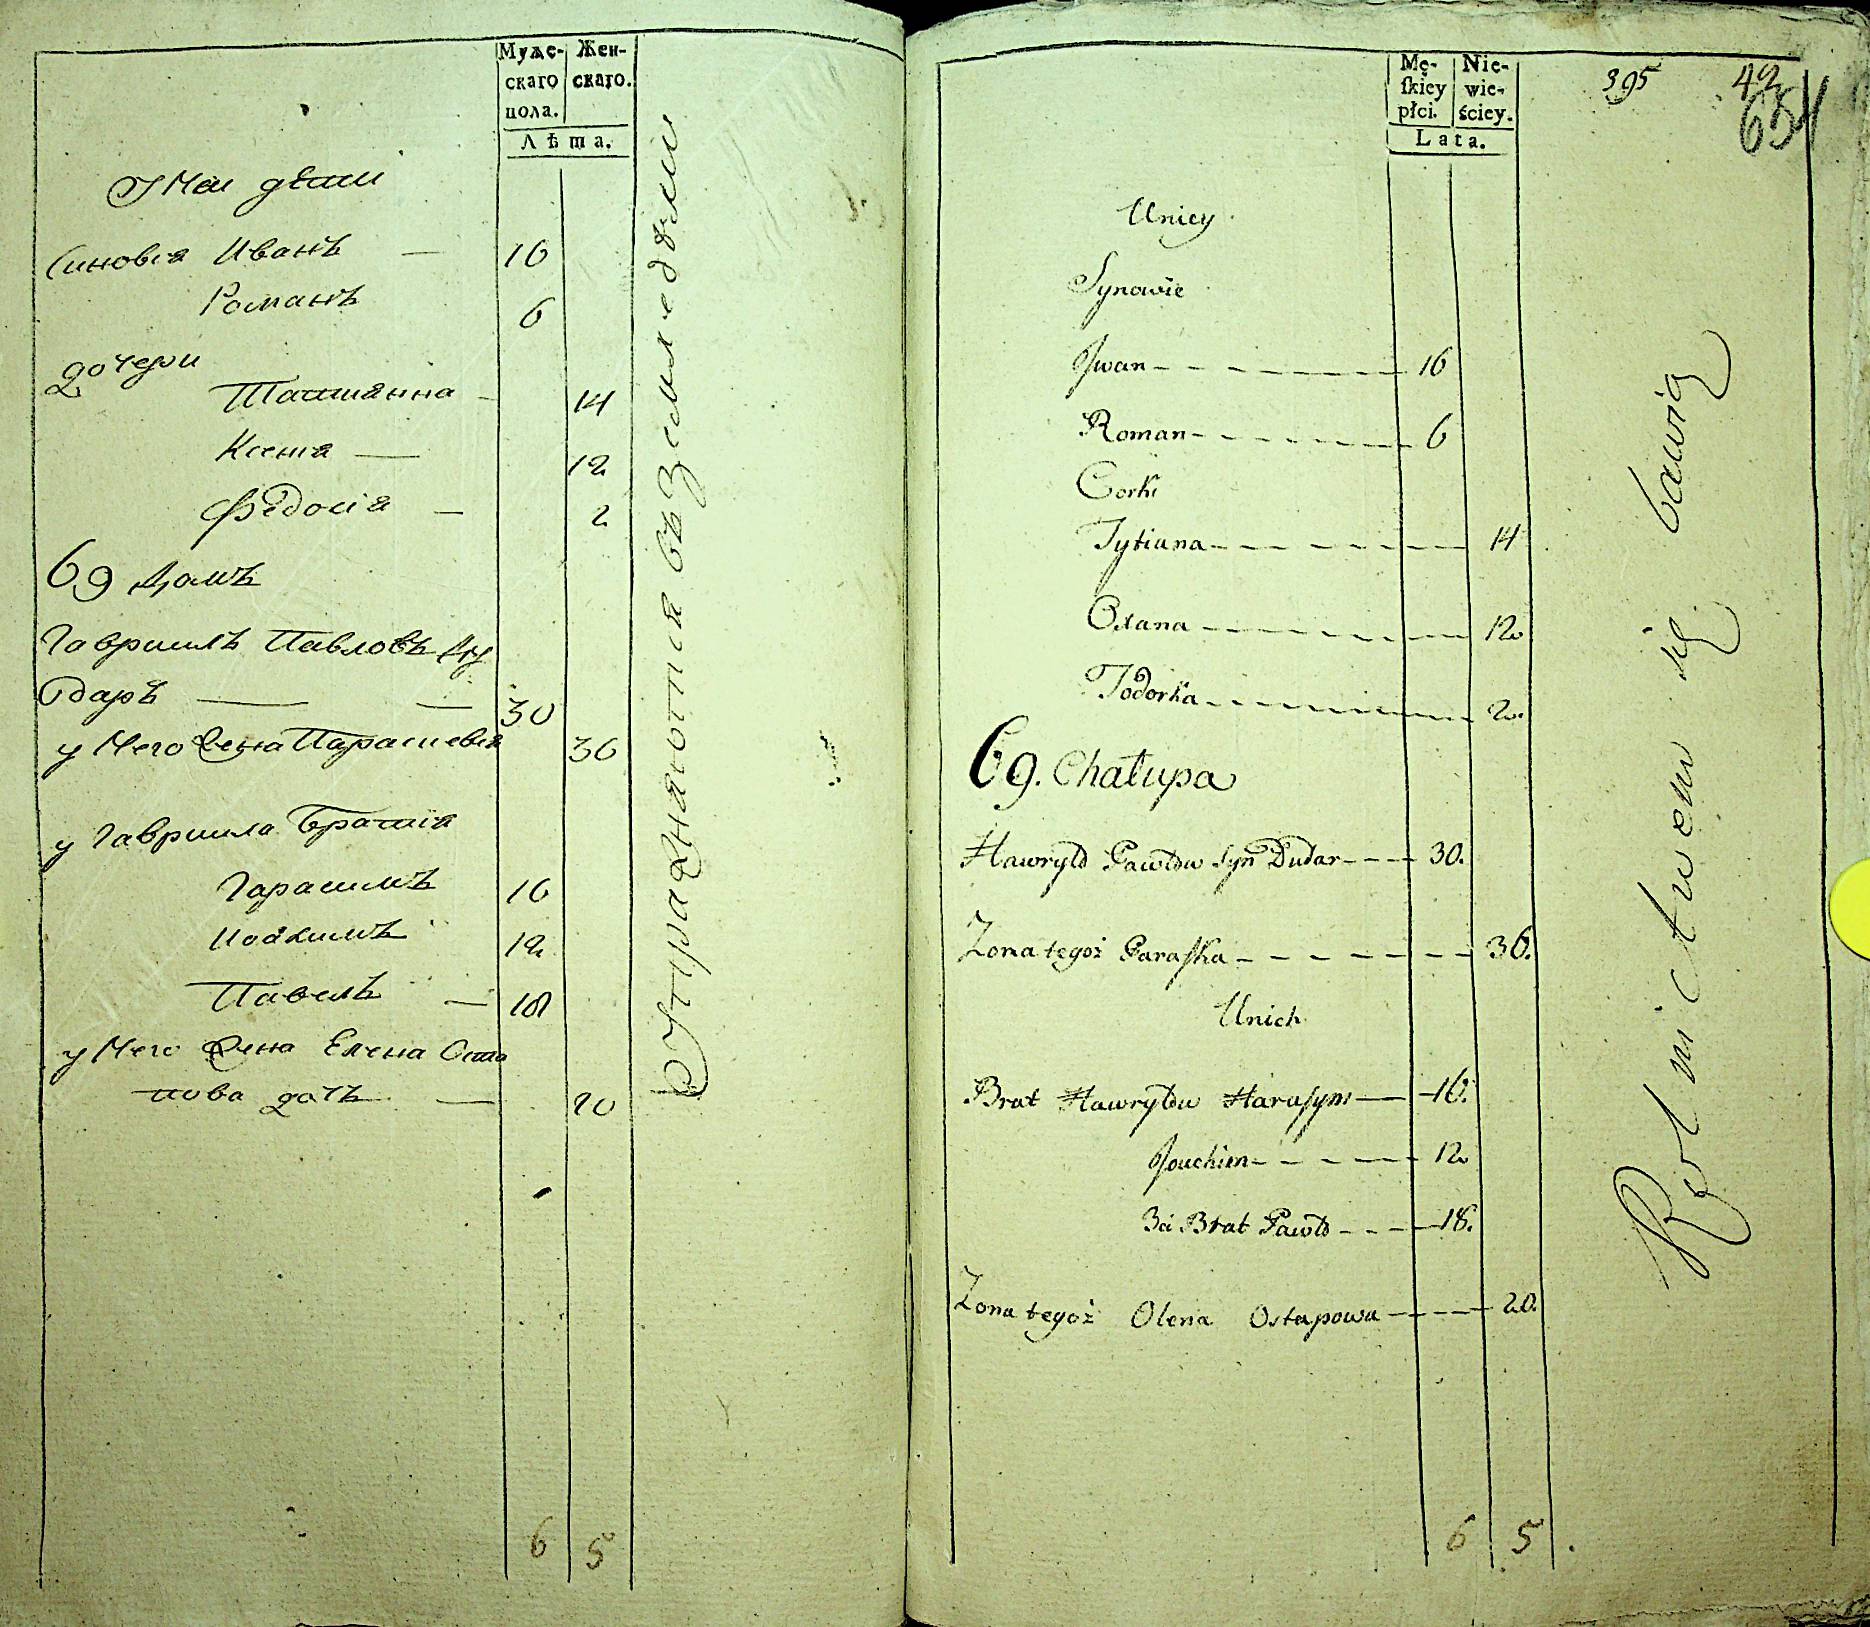 Муже-
скаго
пола.
Жен-
скаго.
Лѣта.
У Ней дѣти
Синовья Иванъ — 16
Романъ 6
Дочери
Татіянна - 14
Ксенія — 12
Федосія — 2
69 Домъ
Гавриилъ Павловъ Ду
даръ — — 30
у Него Жена Парасковія 36
у Гавриила Братія
Гарасимъ 16
Иоакимъ 12
Павелъ — 18
у Него Жена Елена Оста
пова дочь — 20
6 5
Упражняются въ Земледѣліи
Mę-
ſkiey
płci.
Nie-
wie-
ściey.
Lata.
395
42
654
Unicy
Synowie
Jwan 16
Roman 6
Corki
Tytiana 14
Oxana 12
Todorka 2.
69. Chałupa
Hawryło Pawłow Syn Dudar 30.
Zona tegoż Paraſka 36.
Unich
Brat Hawryłow Haraſym 16.
Jouchim 12
3ci Brat Pawło 18.
Zona tegoż Olena Ostapowa 20.
6 5.
Rolnictwem się bawią